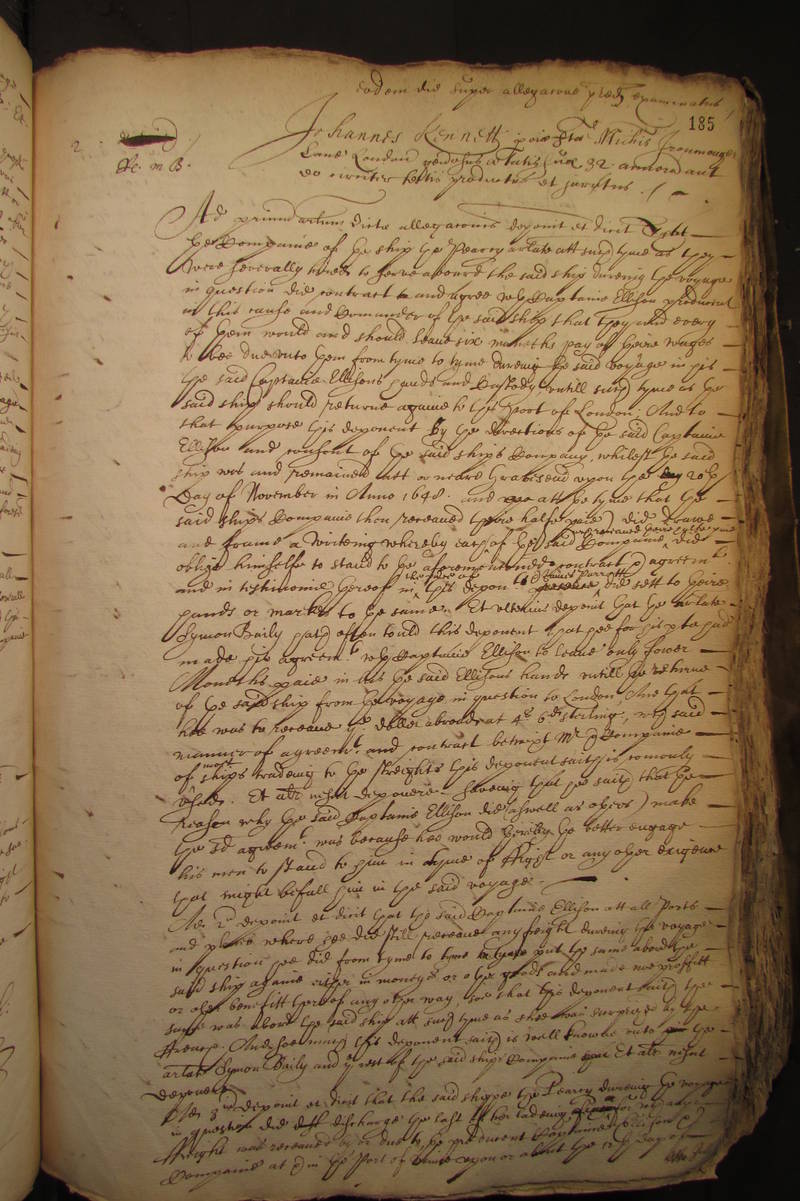 eodem die super allegacone pred examinatus
185
2
Johannes Kennett poie Sti Michis
Lane London ætatis 32 annorum aut
eo circiter testis productus et juratus
Re. m B.
Ad primum artum dictæ allegaconis deponit et dicit That
the Companie of the ship the Pearce arlate att such tyme as they
were severally hired to serve aboard the said ship dureing the voyage
in question did contract and agree with Captaine Ellison producent
in this cause and Comander of the said ship that they and every
of them would and should leave six moneths pay of theire wages
to bee due unto them from tyme to tyme dureing the said voyage in his
the said Captaine Ellisons hands and Custody untill such tyme as the
said ship should returne againe to this Port of London. And to
that purpose this deponent by the directions of the said Captaine
Ellison and consent of the said ships Company, whilest the said
ship was and remained att or neare Gravesend upon the 20th
Day of November in Anno 1648. and att the tyme that the
said ships Companie then receaved theire halfe paie did drawe
and frame a Writeing whereby each of the said Companie did
oblige himselfe to stand to the aforemenconed contract agreemt.
and in testimonie thereof in this depon.ts did sett to theire
hands or markes to the same. Et ulterius deponit That the arlate
Symon Baily hath often tould this deponent that hee for his parte had
made his agreemt. with Captaine Ellison to leave only fower
Moneths paie in his the said Ellisons hands untill the returne
of the said ship from the voyage in question to London, And that
hee was to receave the Doller abroade at 4s 6d sterling, wch said
manner of agreemt. and contract betwixt Mr Companie
of most ships tradeing to the Streights this deponent saith is comonly
used. Et alr nescit deponere. Saveing that hee saith that the
reason why the said Captaine Ellison did (aswell as others) make
the sd agreemt. was because hee would thereby the better engage
his men to stand to him in tyme of Fight or any other exigence
that might befall him in the said voyage.
Ad 2d deponit et dicit that the said Captaine Ellison att all Ports
and places where hee did still receave any freight dureing the voyage
in question hee did from tyme to tyme put the same aboard the
said ship againe either in moneys or other goods and made noe proffitt
or other benefitt thereof any other way, soe that this deponent saith the
same was aboard the said ship att such tyme as shee was surprized by the
French. And soe much this deponent saith is well knowne unto the
arlate Symon Baily and the rest of the said ships Companie Et alr nescit
deponere
Ad 3um deponit et dicit that the said shippe the Pearce dureing the voyage
in question did discharge the last of her ladeing
freight was receaved or due to the producent Captaine Ellison
Companie at in the Port of upon or about the day of